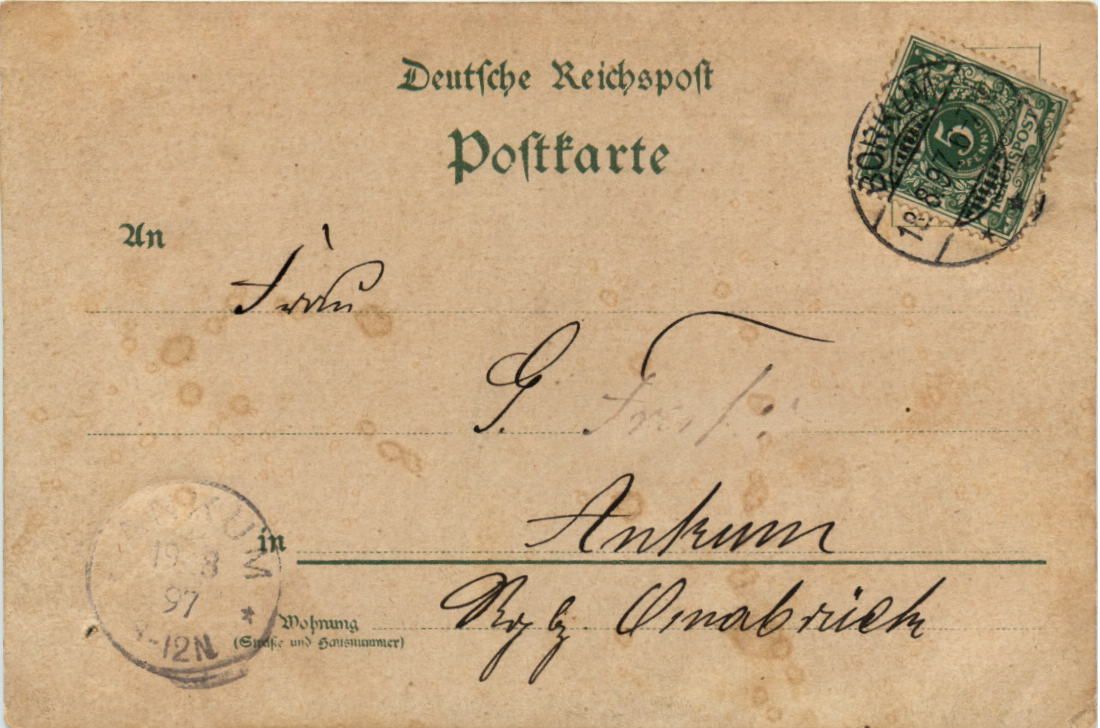 Deutsche Reichspost
Postkarte
5
PFENNIG
REICHSPOST
BORKUM
18.8.97
An
Frau
G.
in Ankum
Wohnung
(Straße und Hausnummer)
Rgbz. Osnabrück
ANKUM
19 8
97
-12N